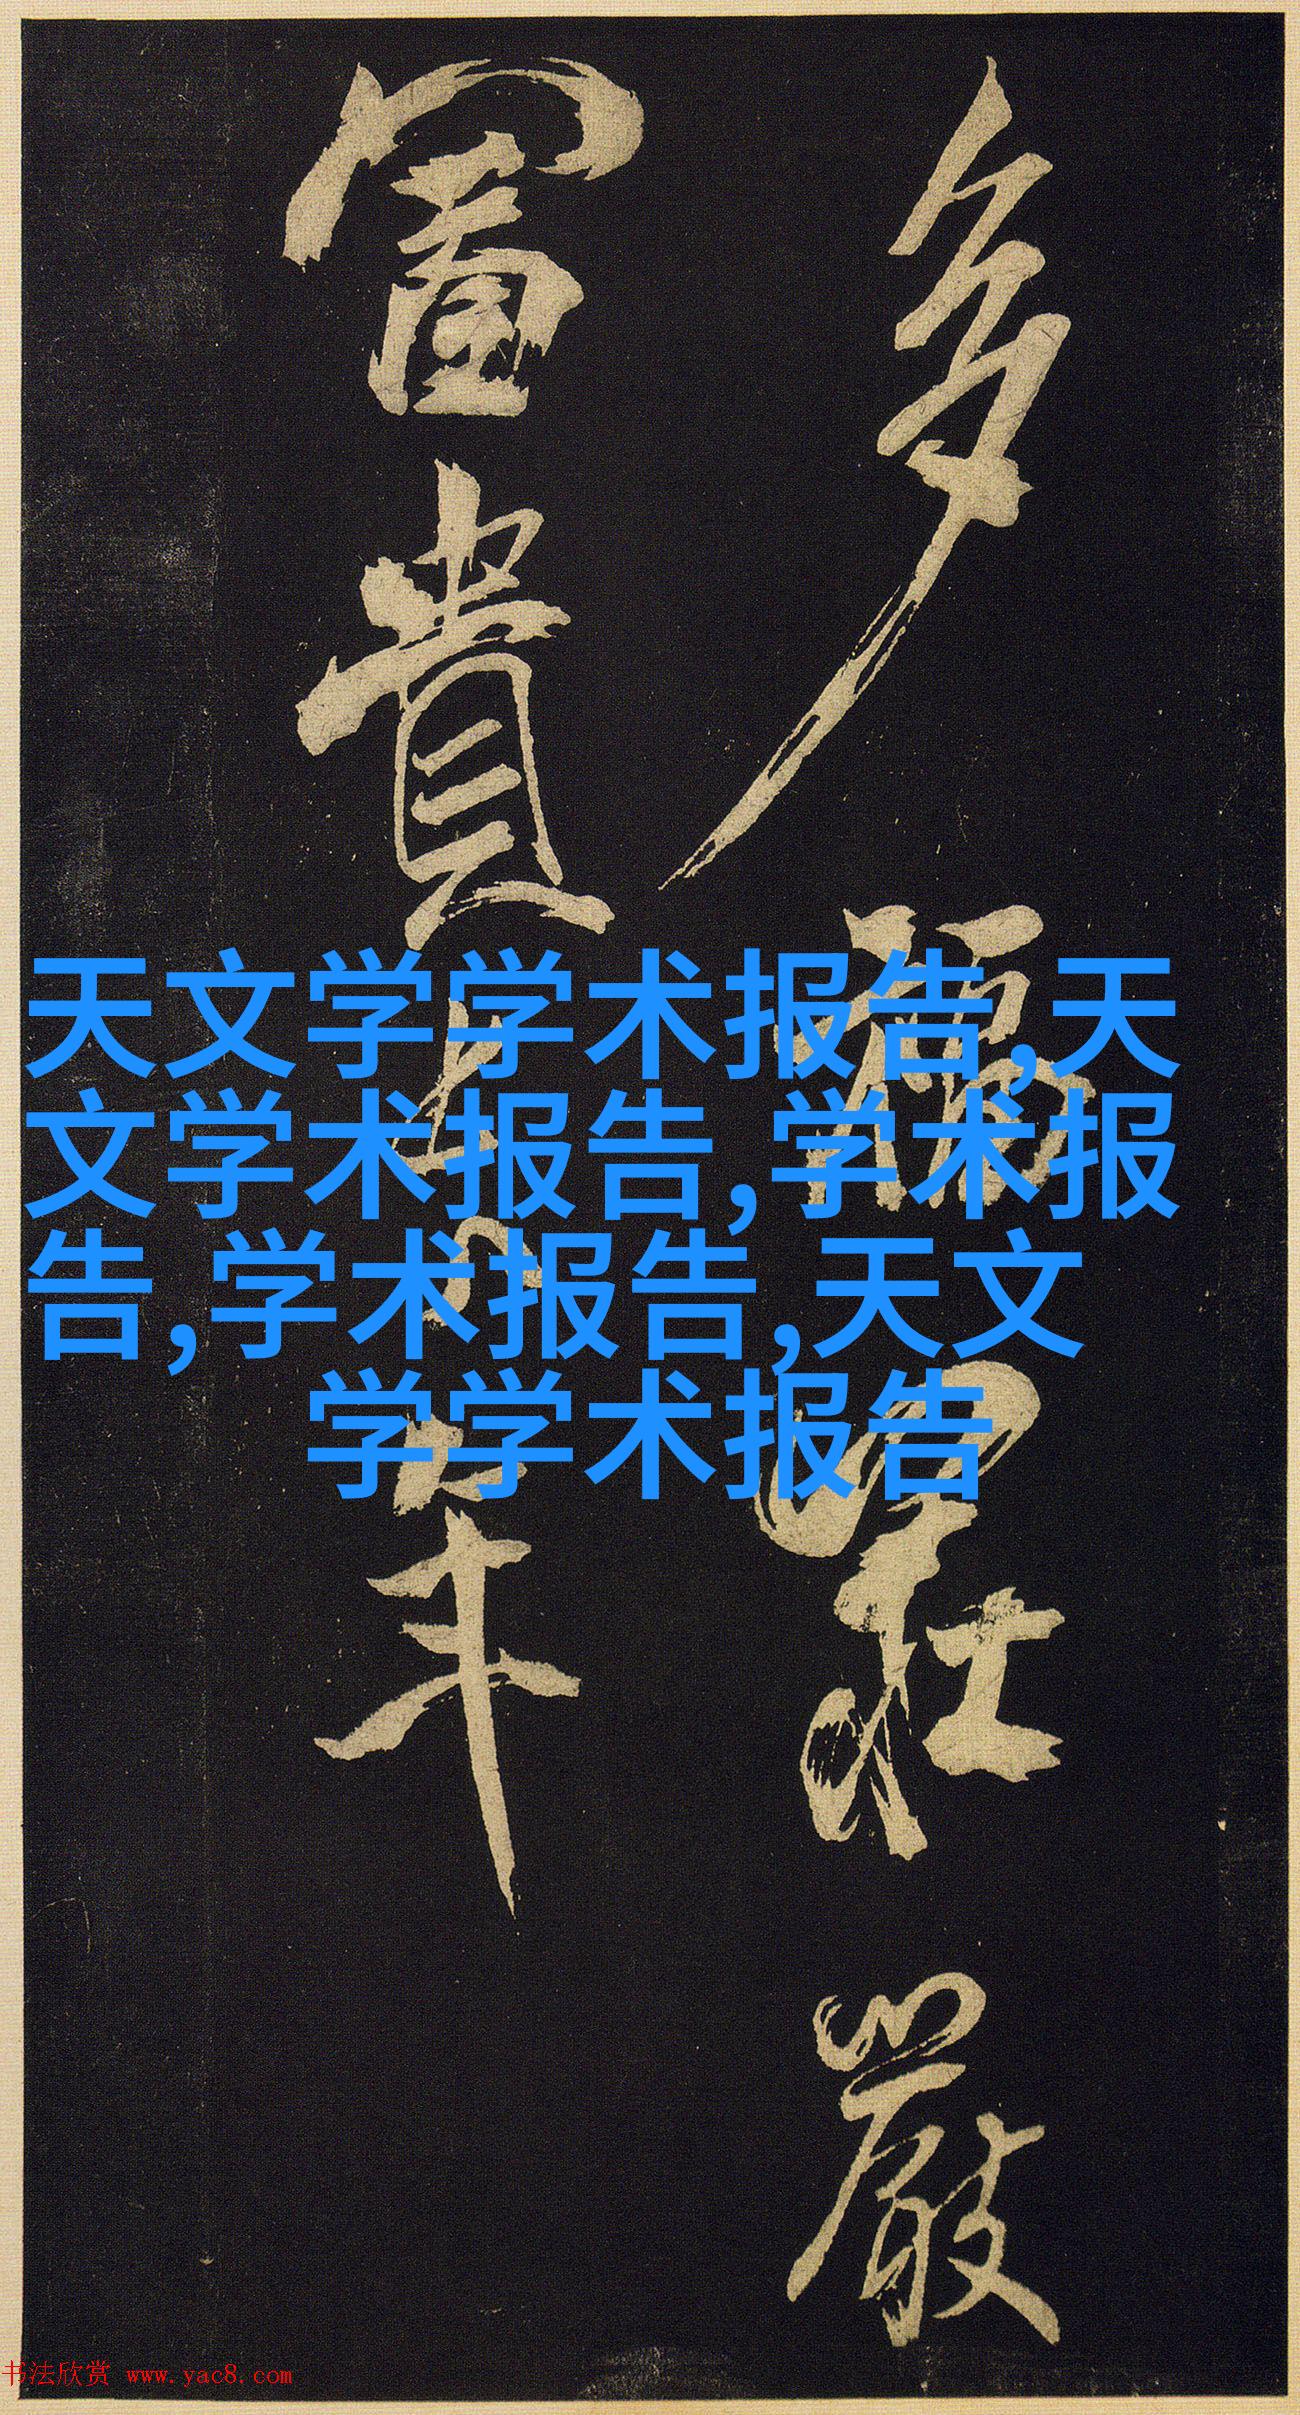 多福聚莊嚴
富貴
年
天文学学术报告,天
文学术报告,学术报
告,学术报告,天文
学学术报告
书法欣赏 www.yac8.com